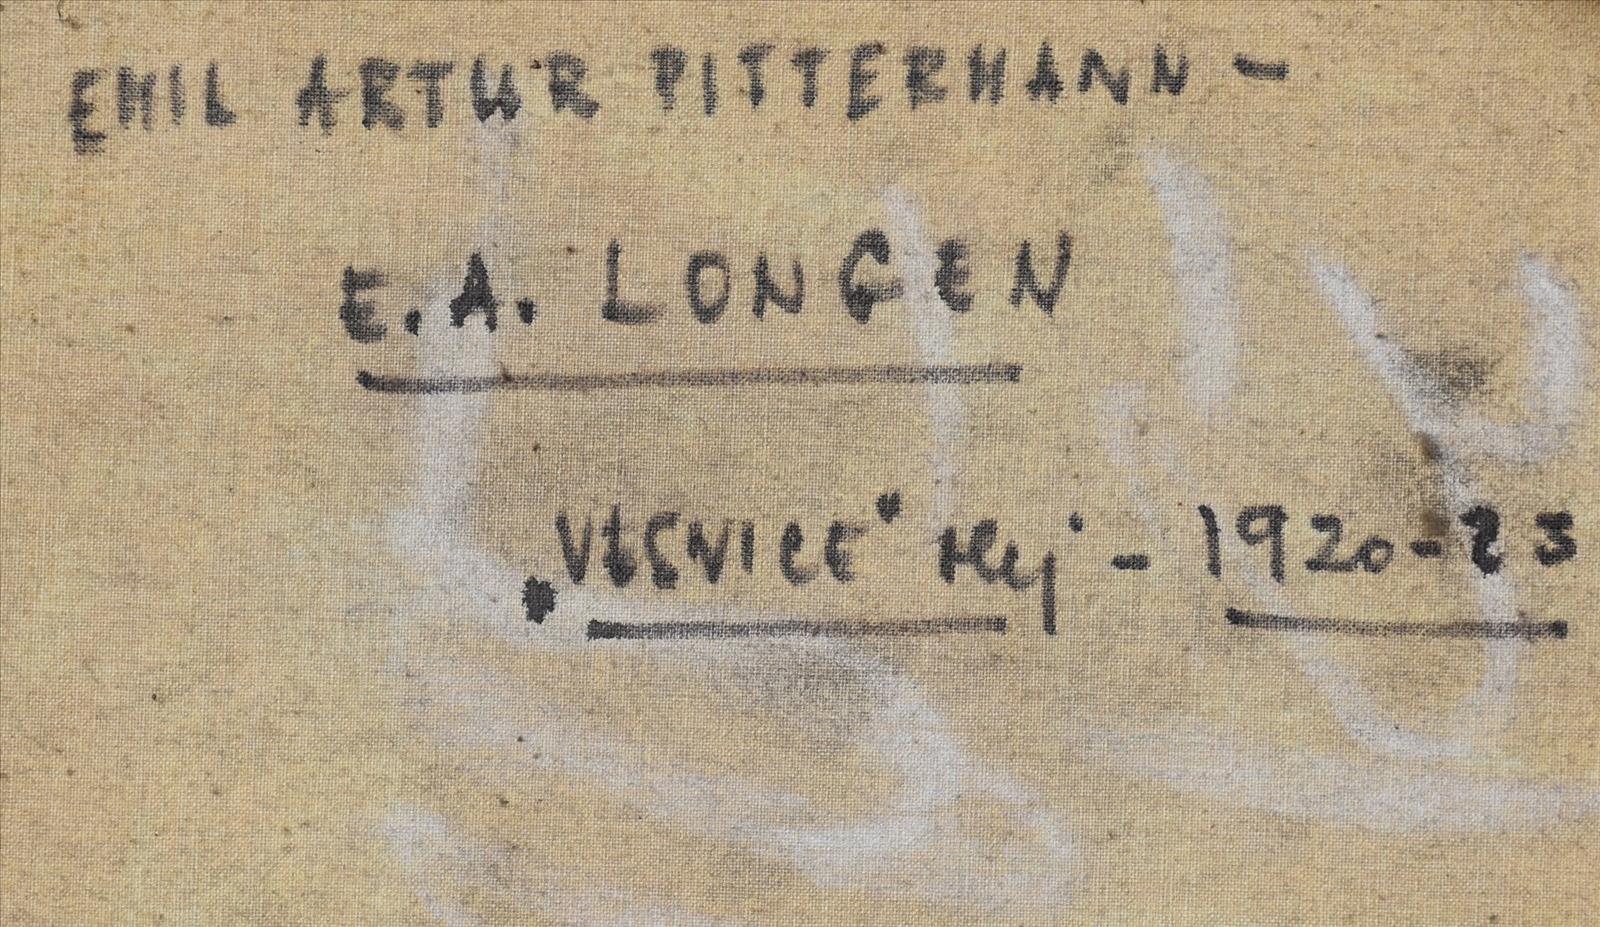 EMIL ARTUR PITTERMANN -
E.A. LONGEN
„VESNICE" olej - 1920-23